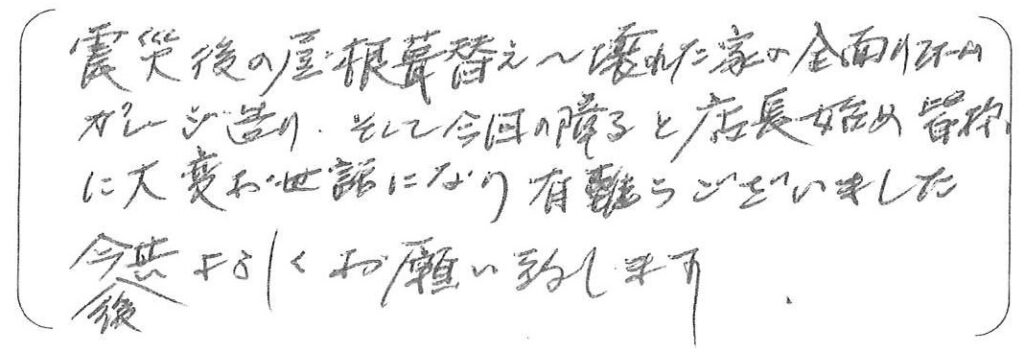 震災後の屋根葺替え〜壊れた家の全面リフォーム
ガレージ造り、そして今回の障ると店長始め皆称
に大変お世話になり有難うございました
今後共よろしくお願い致します